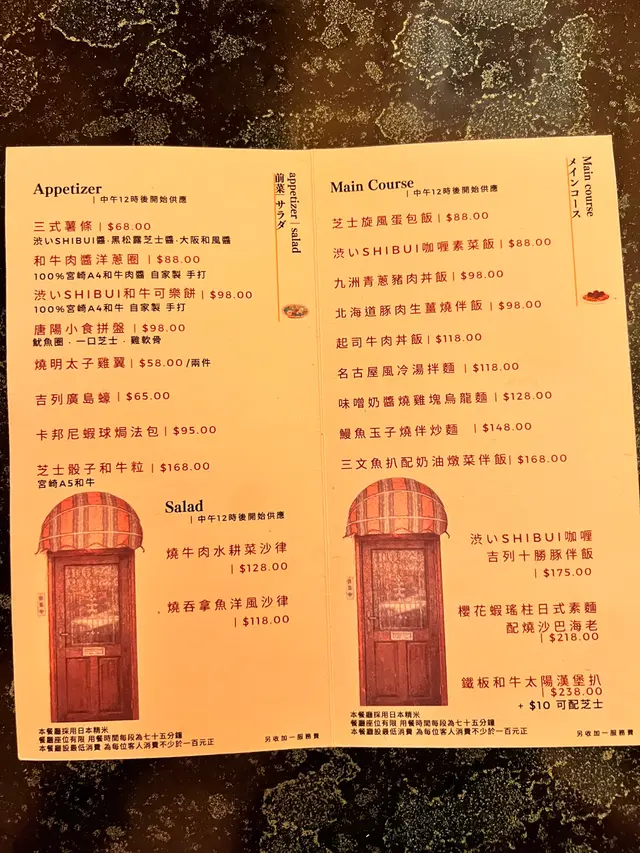 Appetizer
| 中午12時後開始供應
appetizer | salad
前菜 | サラダ
三式薯條 | $68.00
渋いSHIBUI醬·黑松露芝士醬·大阪和風醬
和牛肉醬洋蔥圈 | $88.00
100%宮崎A4和牛肉醬 自家製 手打
渋いSHIBUI和牛可樂餅 | $98.00
100%宮崎A4和牛 自家製 手打
唐陽小食拼盤 | $98.00
魷魚圈·一口芝士·雞軟骨
燒明太子雞翼 | $58.00/兩件
吉列廣島蠔 | $65.00
卡邦尼蝦球焗法包 | $95.00
芝士骰子和牛粒 | $168.00
宮崎A5和牛
Salad
| 中午12時後開始供應
燒牛肉水耕菜沙律
| $128.00
燒吞拿魚洋風沙律
| $118.00
本餐廳採用日本精米
餐廳座位有限 用餐時間每段為七十五分鐘
本餐廳設最低消費 為每位客人消費不少於一百元正
另收加一服務費
Main Course
| 中午12時後開始供應
Main course
メインコース
芝士旋風蛋包飯 | $88.00
渋いSHIBUI咖喱素菜飯 | $88.00
九洲青蔥豬肉丼飯 | $98.00
北海道豚肉生薑燒伴飯 | $98.00
起司牛肉丼飯 | $118.00
名古屋風冷湯拌麵 | $118.00
味噌奶醬燒雞塊烏龍麵 | $128.00
鰻魚玉子燒伴炒麵 | $148.00
三文魚扒配奶油燉菜伴飯 | $168.00
渋いSHIBUI咖喱
吉列十勝豚伴飯
| $175.00
櫻花蝦瑤柱日式素麵
配燒沙巴海老
| $218.00
鐵板和牛太陽漢堡扒
| $238.00
+ $10 可配芝士
本餐廳採用日本精米
餐廳座位有限 用餐時間每段為七十五分鐘
本餐廳設最低消費 為每位客人消費不少於一百元正
另收加一服務費